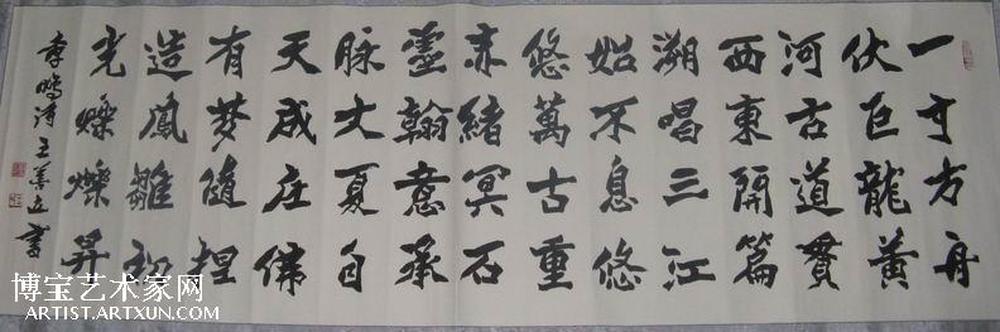 一寸方舟
伏巨龍黃
河古道貫
西東開篇
溯唱三江
始不息悠
悠萬古重
赤緒冥石
靈翰意承
脉大夏自
天成庄佛
有梦隨捏
造鳳雛
光燦爍昇
李鵬濤王善立書
博宝艺术家网
ARTIST.ARTXUN.COM